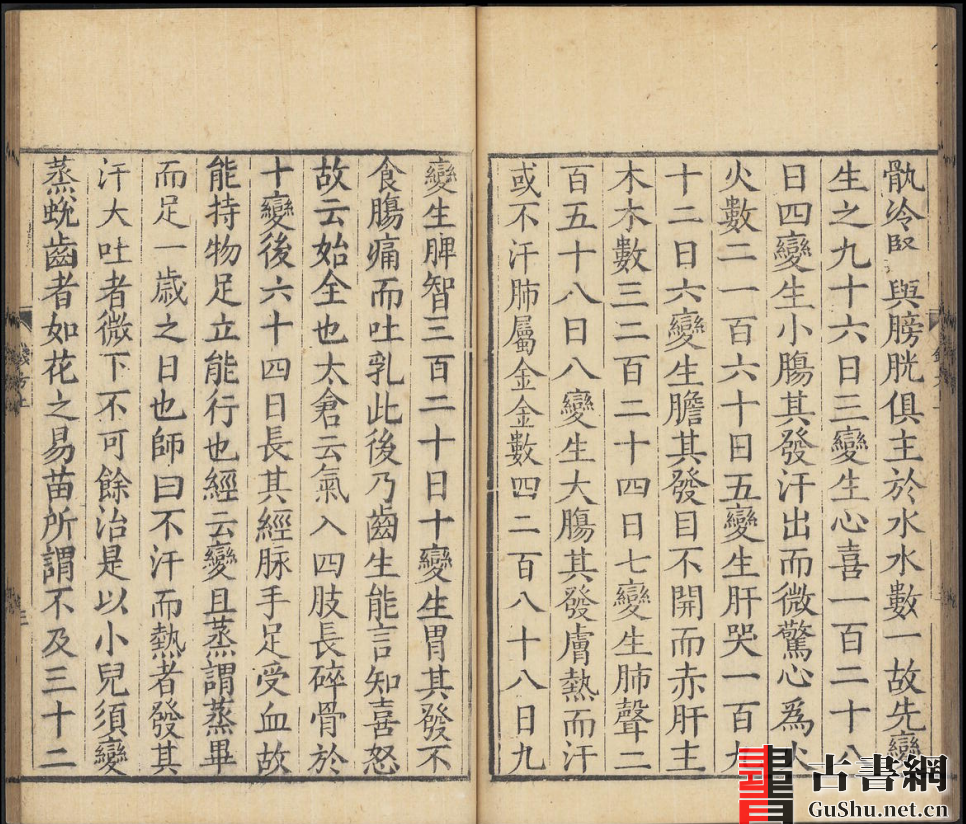 骩冷⿰臣又 與膀胱俱主於水水數一故先變
生之九十六日三變生心喜一百二十八
日四變生小腸其發汗出而微驚心爲火
火數二一百六十日五變生肝哭一百九
十二日六變生膽其發目不開而赤肝主
木木數三二百二十四日七變生肺聲二
百五十八日八變生大腸其發膚熱而汗
或不汗肺屬金金數四二百八十八日九
變生脾智三百二十日十變生胃其發不
食腸痛而吐乳此後乃齒生能言知喜怒
故云始全也太倉云氣入四肢長碎骨於
十變後六十四日長其經脉手足受血故
能持物足立能行也經云變且蒸謂蒸畢
而足一歲之日也師曰不汗而熱者發其
汗大吐者微下不可餘治是以小兒須變
蒸蛻齒者如花之易苗所謂不及三十二
古書網
GuShu.net.cn